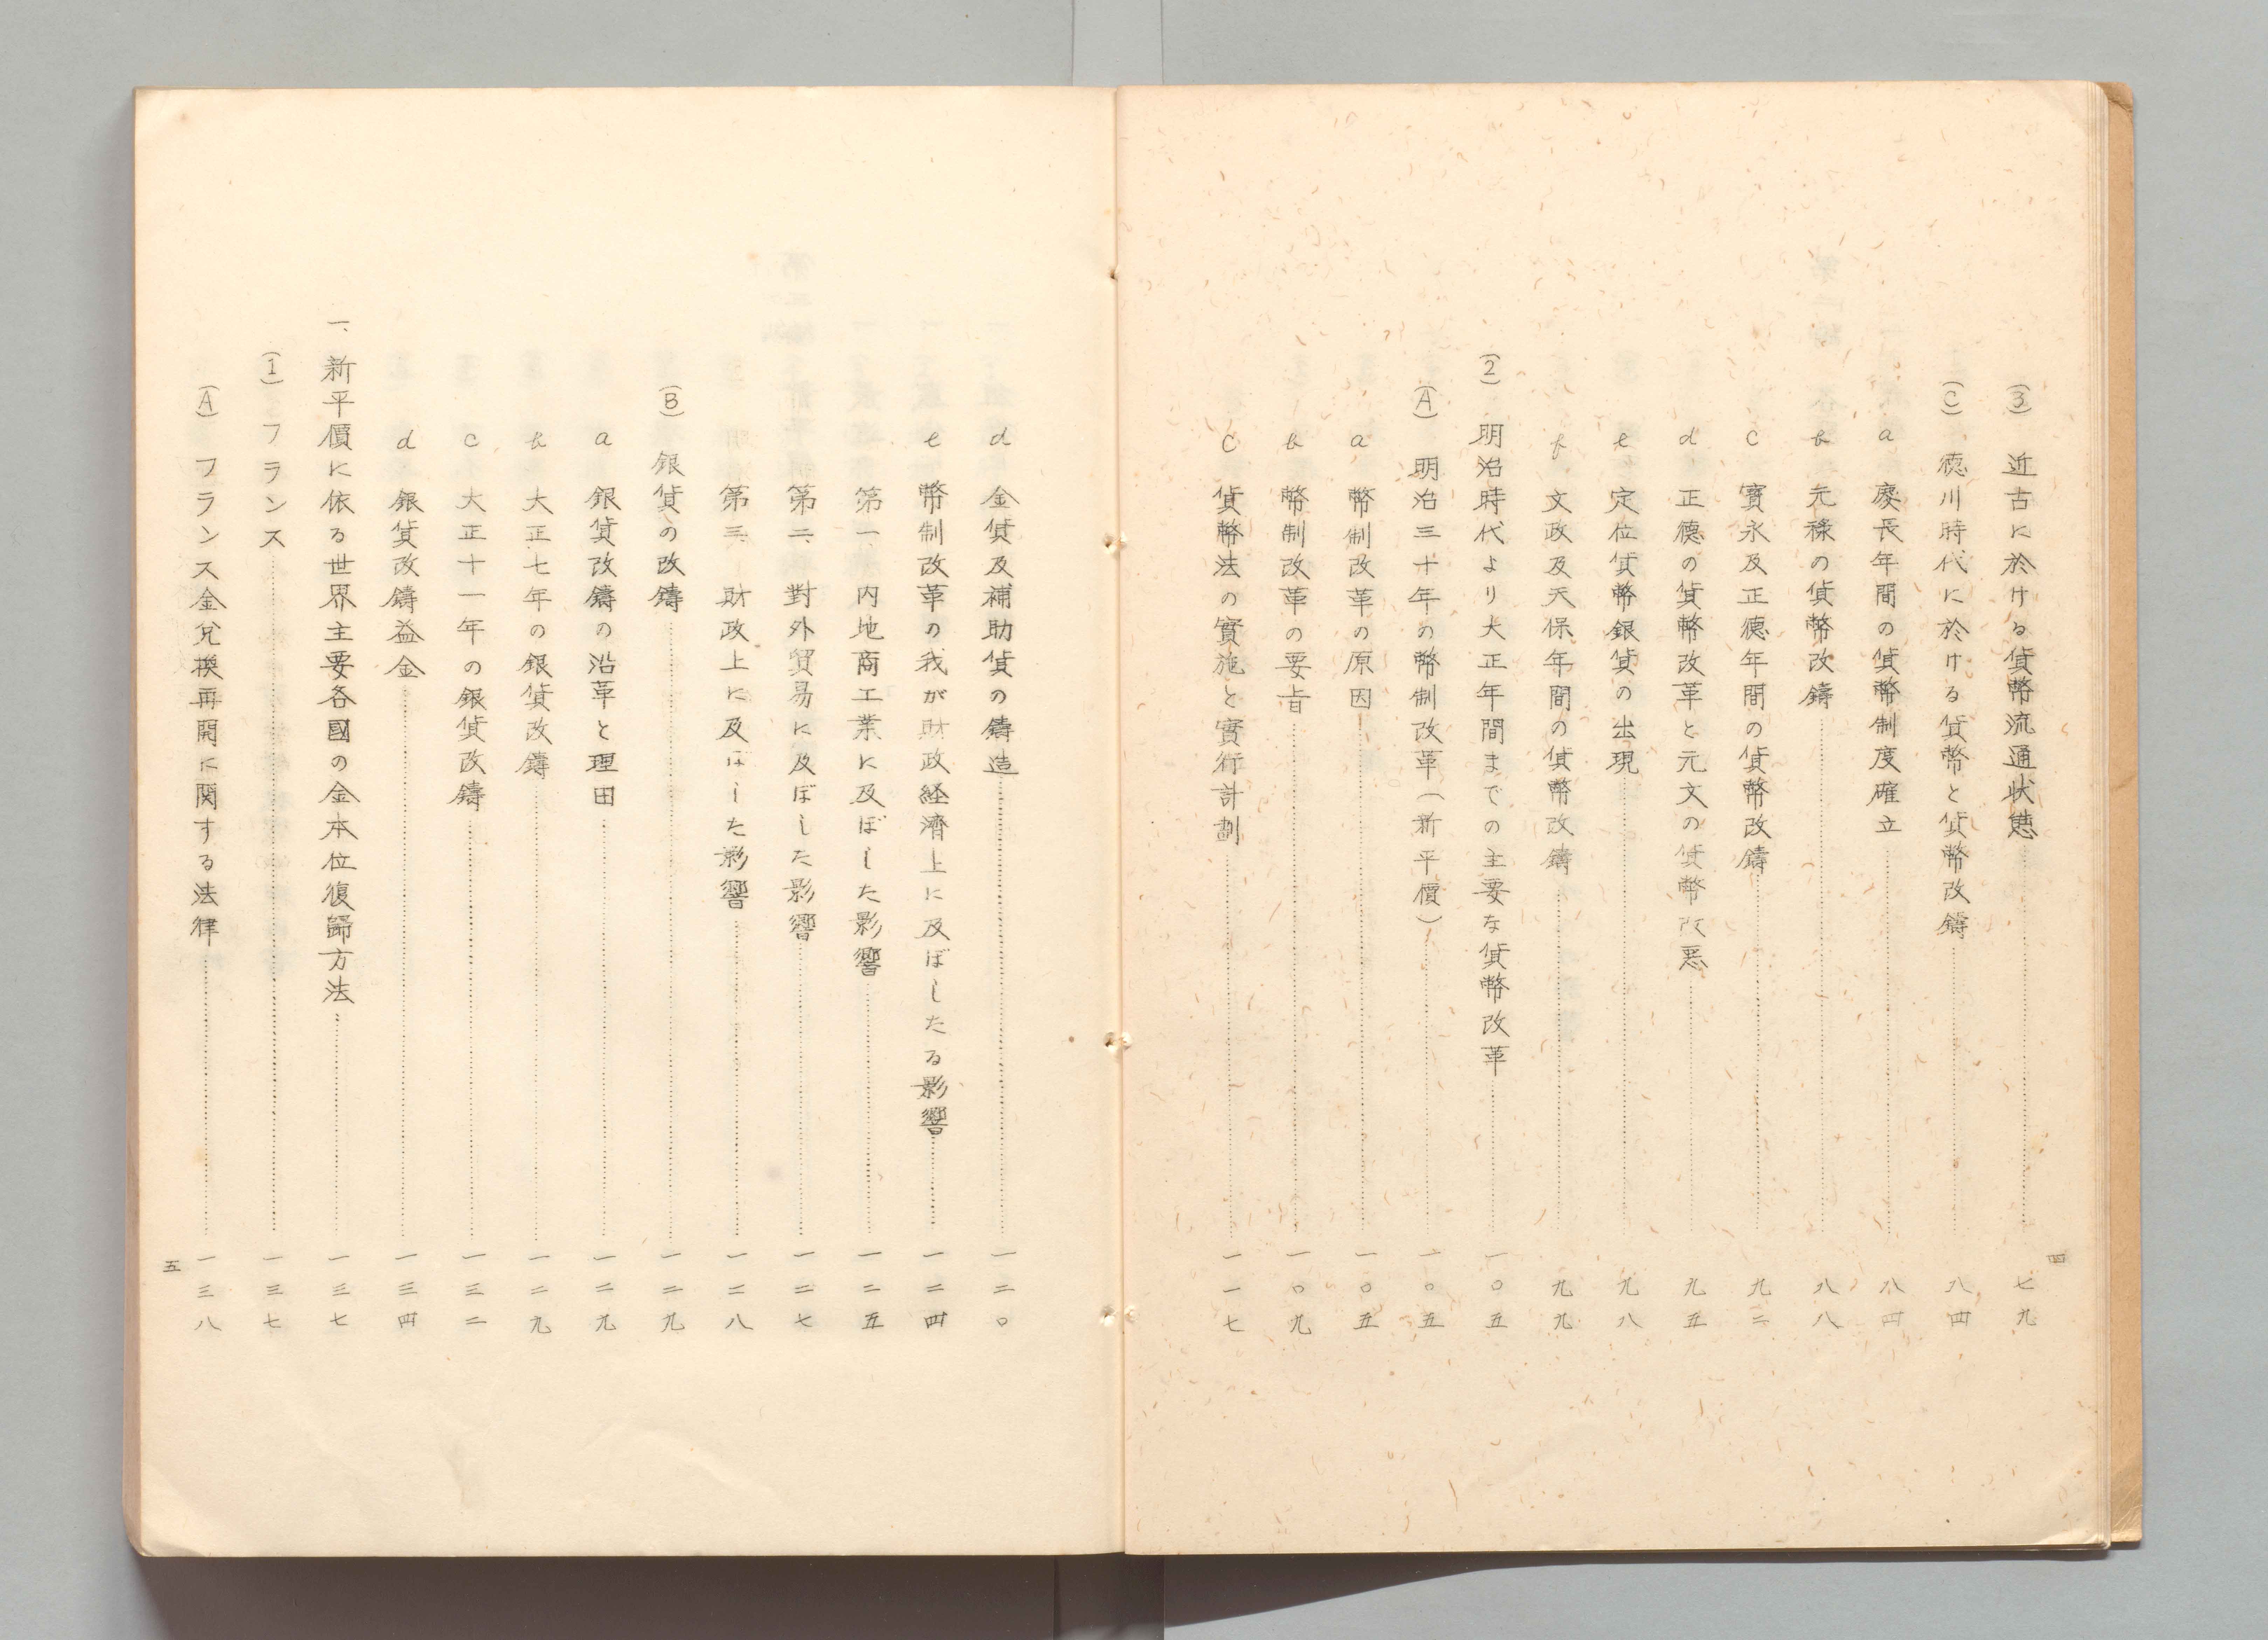 四
(3) c 近古に於ける貨幣流通状態……七九
(C) 徳川時代に於ける貨幣と貨幣改鑄……八四
a 慶長年間の貨幣制度確立……八四
b 元祿の貨幣改鑄……八八
c 寳永及正徳年間の貨幣改鑄……九二
d 正徳の貨幣改革と元文の貨幣改悪……九五
e 定位貨幣銀貨の出現……九八
f 文政及天保年間の貨幣改鑄……九九
(2) 明治時代より大正年間までの主要な貨幣改革……一〇五
(A) 明治三十年の幣制改革(新平價)……一〇五
a 幣制改革の原因……一〇五
b 幣制改革の要旨……一〇九
c 貨幣法の實施と實行計劃……一一七
d 金貨及補助貨の鑄造……一二〇
e 幣制改革の我が財政経濟上に及ぼしたる影響……一二四
第一、内地商工業に及ぼした影響……一二五
第二、對外貿易に及ぼした影響……一二七
第三、財政上に及ぼした影響……一二八
(B) 銀貨の改鑄……一二九
a 銀貨改鑄の沿革と理田……一二九
b 大正七年の銀貨改鑄……一二九
c 大正十一年の銀貨改鑄……一三二
d 銀貨改鑄益金……一三四
一、新平價に依る世界主要各國の金本位復歸方法……一三七
(1) フランス……一三七
(A) フランス金兌換再開に関する法律……一三八
五